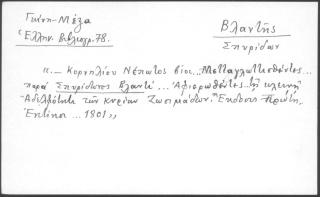 Γκίνη-Μέξα
Ἑλλην. Βιβλιογρ. 78.
Βλαντῆς
Σπυρίδων
«.— Κορνηλίου Νέπωτος βίοι... Μεταγλωττισθέντες...
παρὰ Σπυρίδωνος Βλαντῆ... Ἀφιερωθέντες... τῇ κλεινῇ
Ἀδελφότητι τῶν κυρίων Ζωσιμάδων. Ἔκδοσις Πρώτη.
Ἑνετίησι ... 1801,,